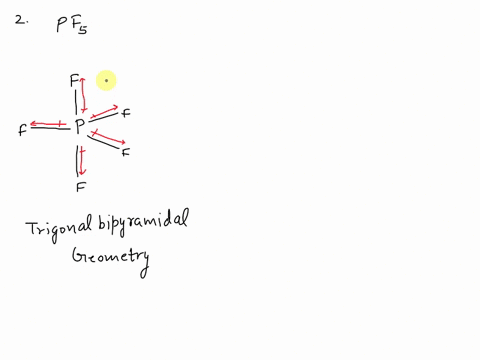 2. PF5
F
F
F P
F
F
Trigonal bipyramidal
Geometry